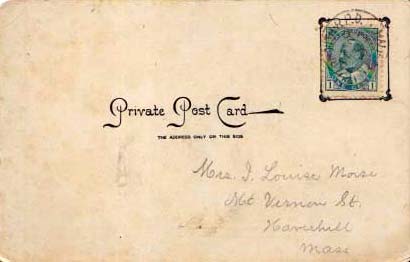 R.P.D.
1 1
Private Post Card
THE ADDRESS ONLY ON THIS SIDE
Mrs. J. Louise Morse
Mt Vernon St.
Haverhill
Mass